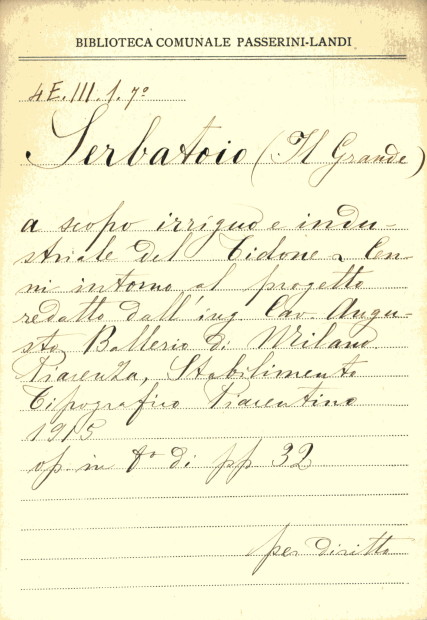 BIBLIOTECA COMUNALE PASSERINI-LANDI
4E.III.1.7º
Serbatoio (Il Grande)
a scopo irriguo e indu-
striale del Tidone. Cen-
ni intorno al progetto
redatto dall'ing. Cav. Augu-
sto Ballerio di Milano
Piacenza, Stabilimento
Tipografico Piacentino
1915
op in fº di pp 32
per diritto